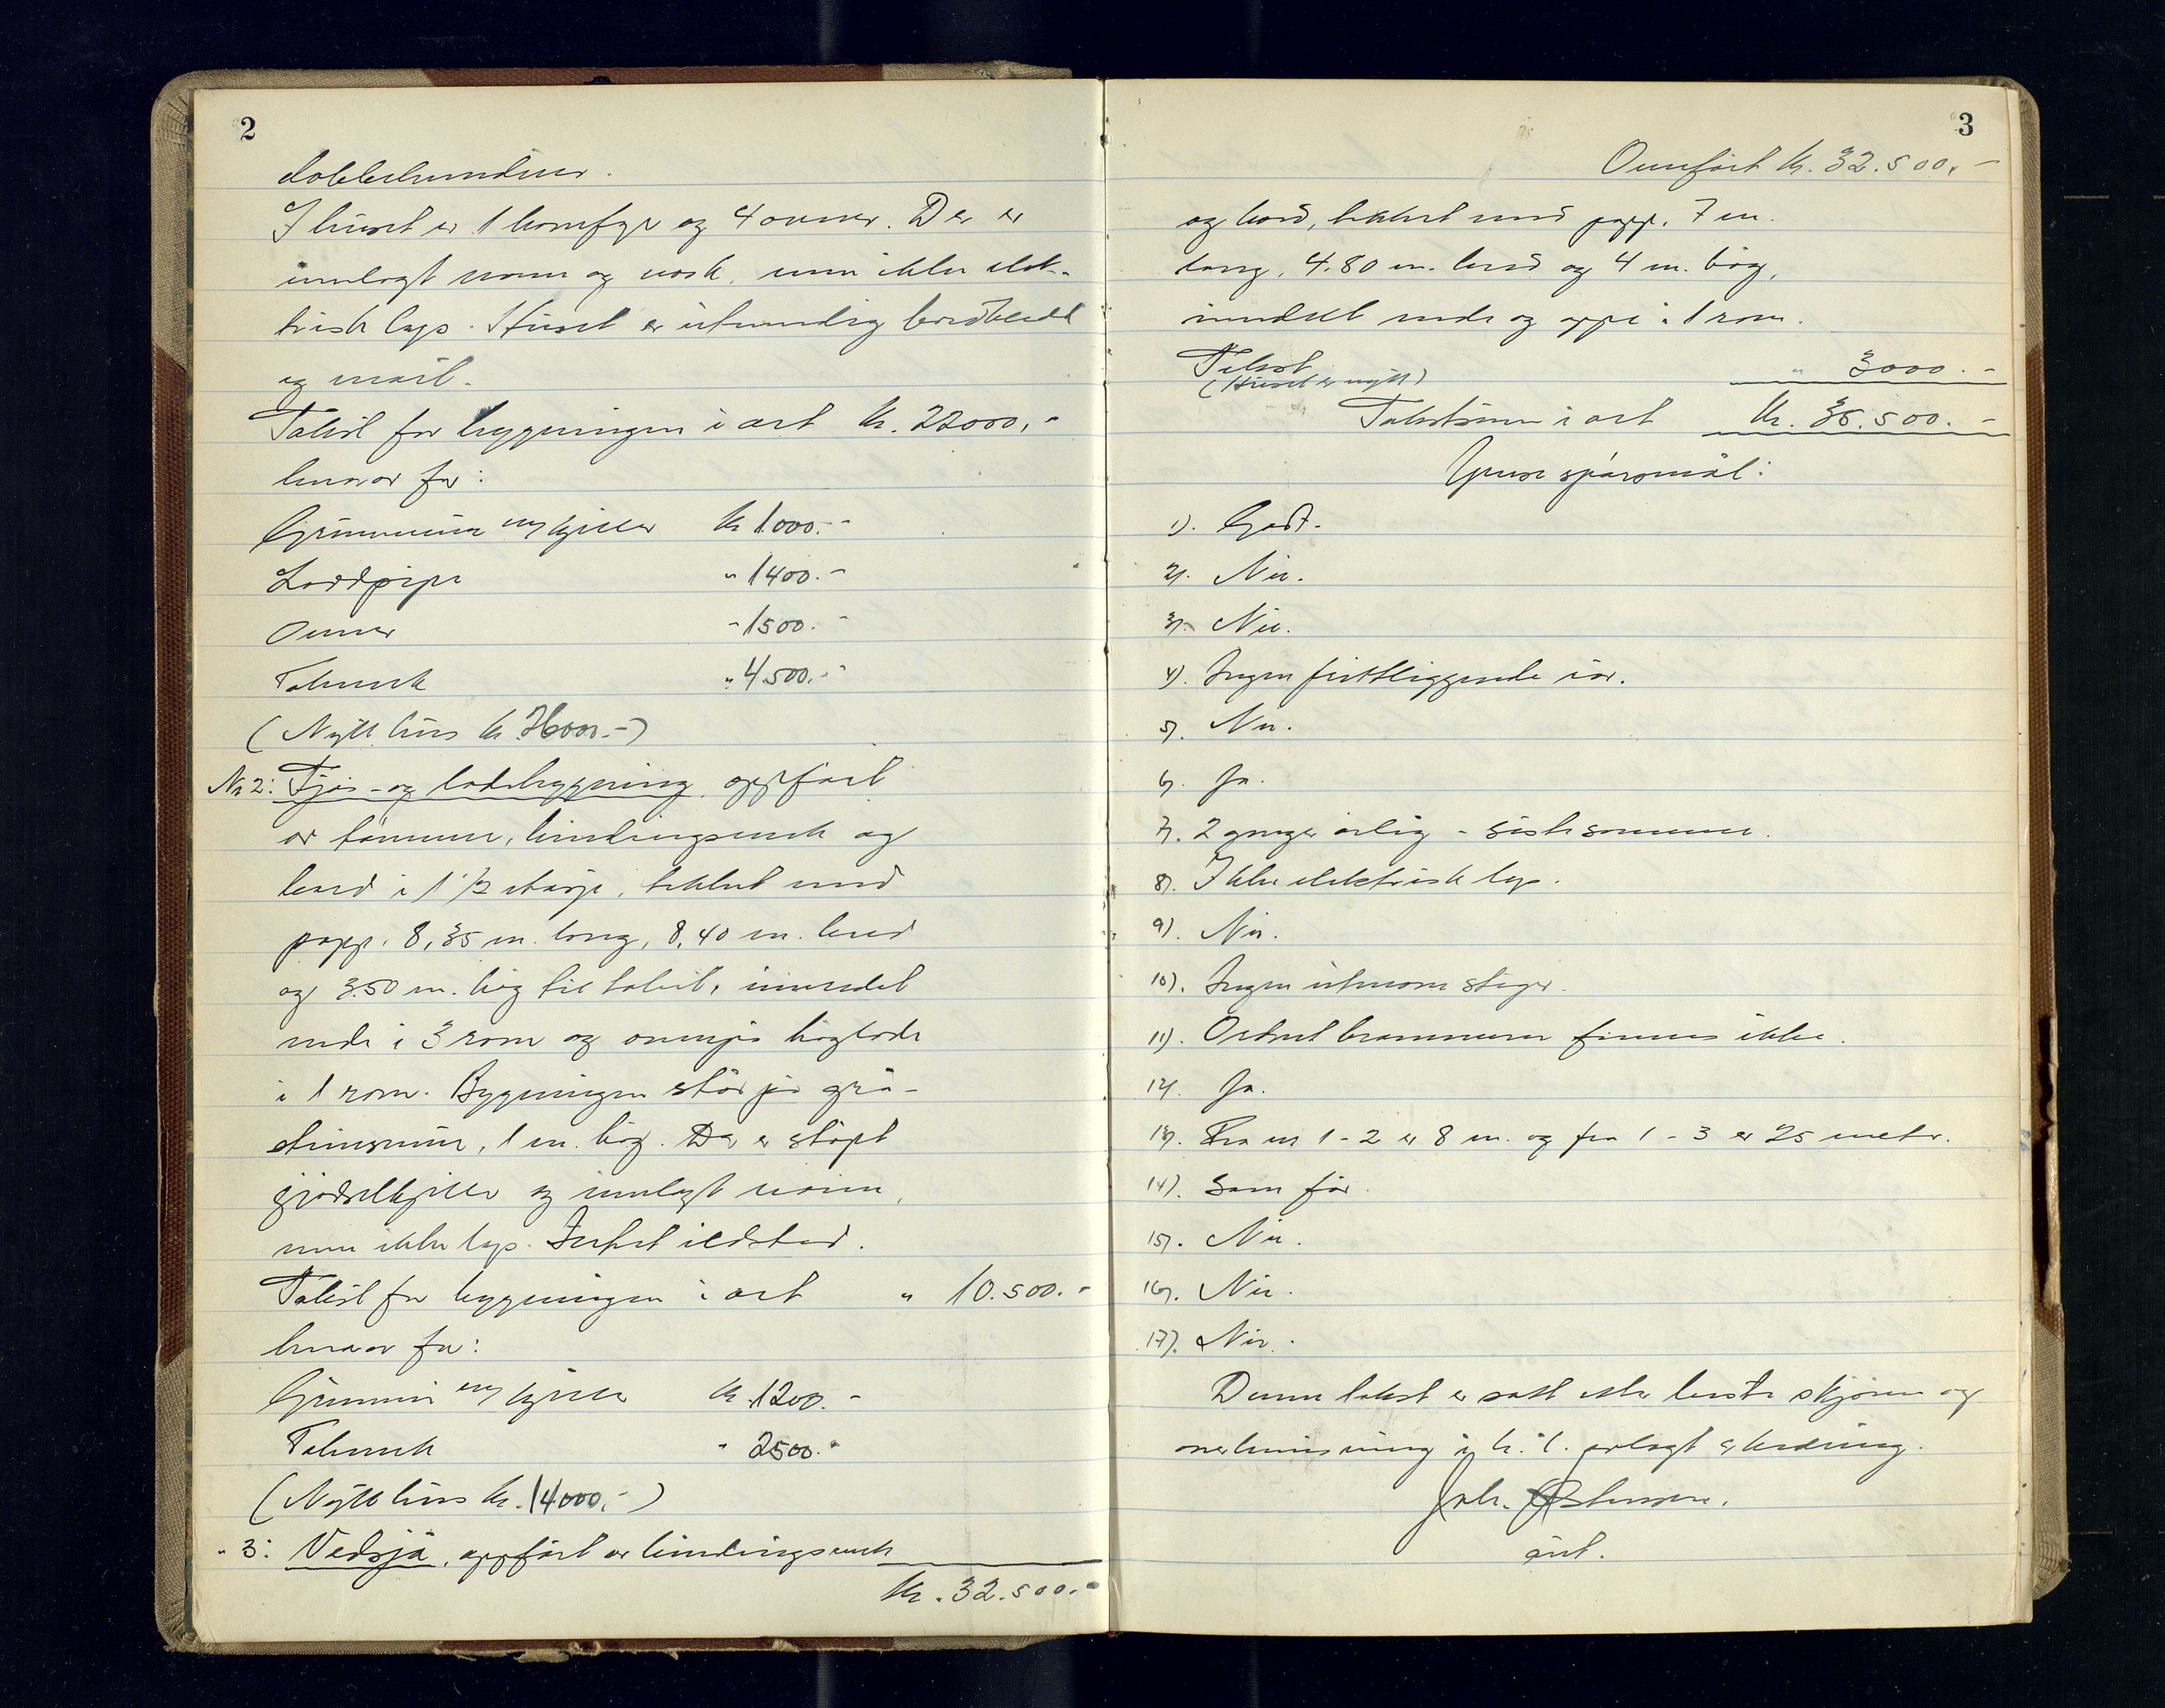 2
dobbeltvinduer.
I huset er 1 komfyr og 4 ovner. Der er
innlagt vann og vask, men ikke elek-
trisk lys. Huset er utvendig bordkledd
og malt.
Takst for bygningen i alt kr. 22000,-
herav for:
Grunnmur m/ kjeller kr 1000.-
Loddpipe " 1400.-
Ovner " 1500.-
Takverk " 4.500.-
(Nytt hus kr. 26000.-)
Nr 2: Fjøs- og ladebygning, oppført
av tømmer, bindingsverk og
bord i 1 1/2 etasje, tekket med
papp. 8,35 m. lang, 8,40 m. bred
og 3.50 m. høg til takst, inndelt
nede i 3 rom og ovenpå høylade
i 1 rom. Bygningen står på grå-
steinsmur, 1 m. høg. Der er støpt
gjødselkjeller og innlagt vann,
men ikke lys. Intet ildsted.
Takst for bygningen i alt " 10.500.-
herav for:
Grunnmur m/ kjeller kr. 1200.-
Takverk " 2500.-
(Nytt hus kr. 14000,-)
" 3: Vedsjå, oppført av bindingsverk
kr. 32.500.-
3
Overført kr. 32.500.-
og bord, tekket med papp. 7 m.
lang, 4.80 m. bred og 4 m. høg,
inndelt nede og oppe i 1 rom.
Takst " 3000.-
(Huset er nytt)
Takstsum i alt kr. 35.500.-
Visse spørsmål:
1). Godt.
2). Nei.
3). Nei.
4). Ingen frittliggende rør.
5). Nei.
6). Ja.
7). 2 ganger årlig - siste sommer.
8). Ikke elektrisk lys.
9). Nei.
10). Ingen utenom stiger.
11). Ordnet brannvern finnes ikke.
12). Ja.
13). Fra nr 1 - 2 er 8 m. og fra 1 - 3 er 25 meter.
14). Som før.
15). Nei.
16). Nei.
17). Nei.
Denne takst er satt etter beste skjønn og
overbevisning i h. t. avlagt erklæring.
Joh.